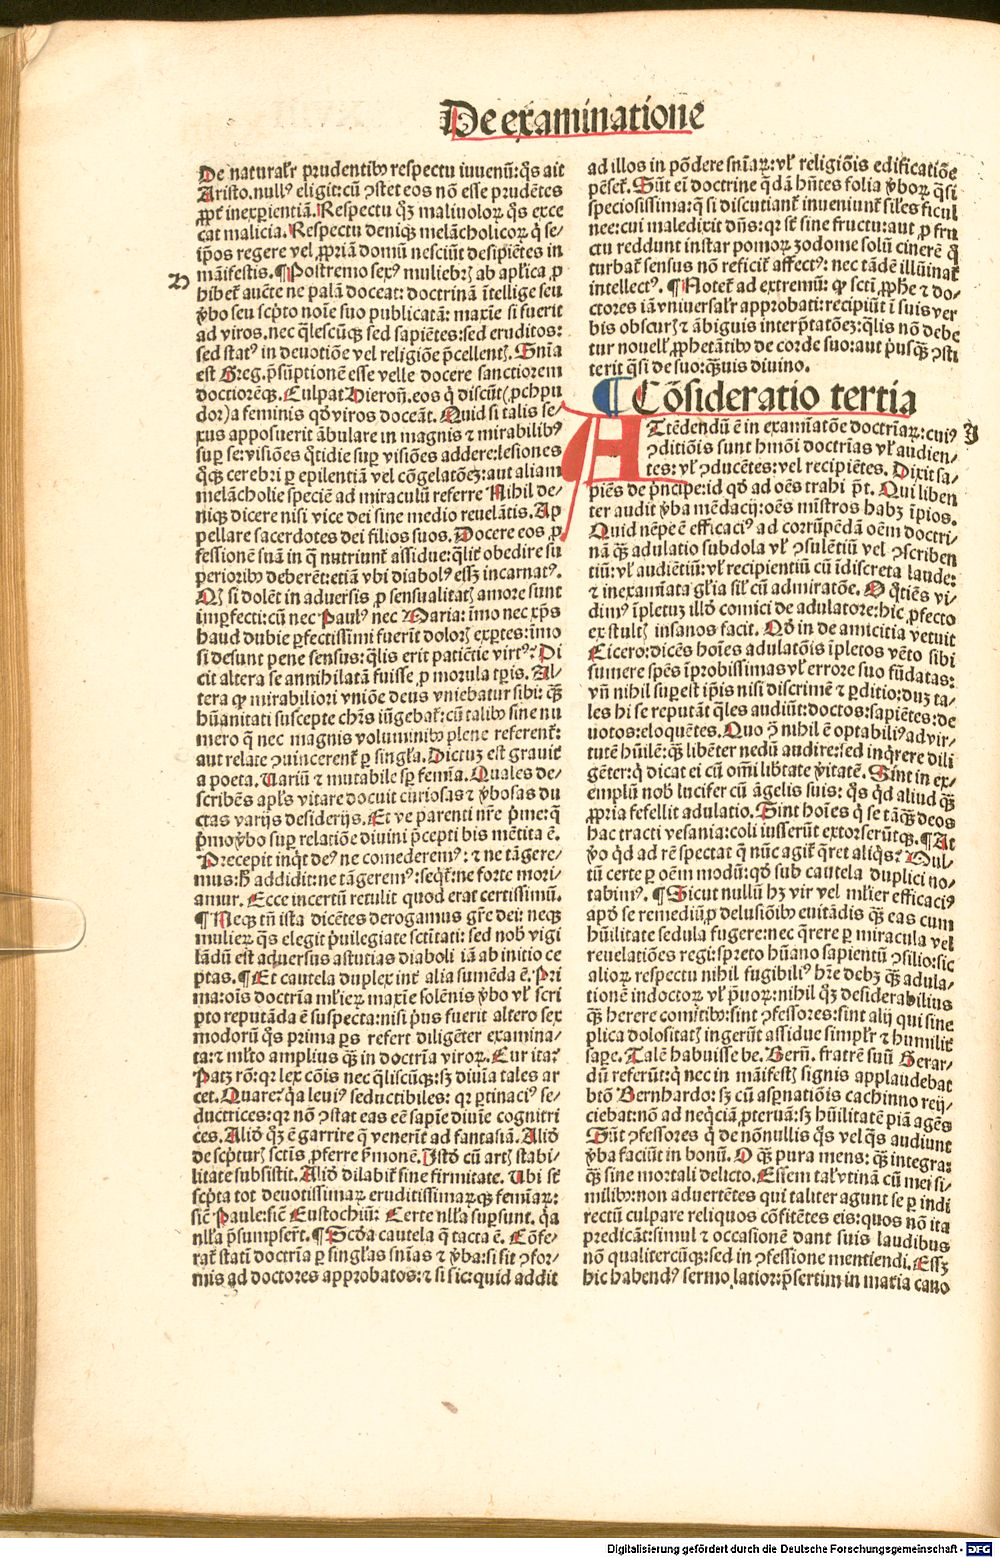 De examinatione
De naturalr prudentibꝰ respectu iuuenũ: q̃s ait
Aristo. nullꝰ eligit: cũ ꝯstet eos nõ esse prudẽtes
ꝓpt̃ inexperientiã. Respectu q̃ꝫ maliuoloꝝ q̃s exce
cat malicia. Respectu deniqꝫ melãcholicoꝝ q̃ se/
ip̃os regere vel ꝓpriã domũ nesciũt desipiẽtes in
mãifestis. ¶ Postremo sexꝰ muliebrꝫ ab apl̃ica ꝓ
hibet̃ auc̃te ne palã doceat: doctrinã ĩtellige seu
ṽbo seu scp̃to noĩe suo publicatã: maxĩe si fuerit
ad viros. nec q̃lescũqꝫ sed sapiẽtes: sed eruditos:
sed statꝰ in deuotiõe vel religiõe p̃cellentꝫ. Sñia
est Greg. p̃sũptionẽ esse velle docere sanctiorem
doctiorẽqꝫ. Culpat Hieroñ. eos q̃ discũt (ꝓchpu
dor) a feminis qd̃ viros doceãt. Quid si talis se/
xus apposuerit ãbulare in magnis ⁊ mirabilibꝰ
suꝑ se: visiões q̃tidie suꝑ visiões addere: lesiones
q̃qꝫ cerebri ꝑ epilentiã vel cõgelatõeꝫ: aut aliam
melãcholie speciẽ ad miraculũ referre Nihil de/
niqꝫ dicere nisi vice dei sine medio reuelãtis. Ap
pellare sacerdotes dei filios suos. Docere eos ꝓ
fessionẽ suã in q̃ nutriunt̃ assidue: q̃lit̃ obedire su
perioribꝰ deberẽt: etiã vbi diabolꝰ essꝫ incarnatꝰ.
Qꝫ si dolẽt in aduersis ꝓ sensualitatꝫ amore sunt
imꝑfecti: cũ nec Paulꝰ nec Maria: ĩmo nec xp̃s
haud dubie perfectissimi fuerĩt dolorꝫ exꝑtes: ĩmo
si desunt pene sensus: q̃lis erit patiẽtie virtꝰ? Di
cit altera se annihilatã fuisse ꝓ morula tꝑis. Al/
tera ꝙ mirabiliori vniõe deus vniebatur sibi: q̃ꝫ
hũanitati suscepte chr̃s iũgebat̃: cũ talibꝰ sine nu
mero q̃ nec magnis voluminibꝰ plene referent̃:
aut relate ꝯuincerent̃ ꝑ singl̃a. Dictuꝫ est grauit̃
a poeta. Variũ ⁊ mutabile sꝑ femĩa. Quales de/
scribẽs apl̃s vitare docuit curiosas ⁊ ṽbosas du
ctas varijs desiderijs. Et ve parenti nr̃e p̃me: q̃
p̃mo ṽbo suꝑ relatiõe diuini p̃cepti bis mẽtita ẽ.
Precepit inq̃t deꝰ ne comederemꝰ: ⁊ ne tãgere/
mus: h̃ addidit: ne tãgeremꝰ: seq̃t̃: ne forte mori/
amur. Ecce incertũ retulit quod erat certissimũ.
¶ Neqꝫ tñ ista dicẽtes derogamus gr̃e dei: neqꝫ
mulieꝝ q̃s elegit p̃uilegiate sctĩtati: sed nob̃ vigi
lãdũ est aduersus astutias diaboli iã ab initio ce
ptas. ¶ Et cautela duplex int̃ alia sumẽda ẽ. Pri
ma: oĩs doctrĩa ml̃ieꝝ maxĩe solẽnis ṽbo vl̃ scri
pto reputãda ẽ suspecta: nisi p̃us fuerit altero sex
modorũ q̃s prima ꝑs refert diligẽter examina/
ta: ⁊ ml̃to amplius q̃ꝫ in doctrĩa viroꝝ. Cur ita?
Patꝫ rõ: qꝛ lex cõis nec q̃liscũqꝫ: sꝫ diuĩa tales ar
cet. Quare? q̃a leuiꝰ seductibiles: qꝛ ꝑtinaciꝰ se/
ductrices: qꝛ nõ ꝯstat eas eẽ sapĩe diuĩe cognitri
ces. Aliõ q̃ꝫ ẽ garrire q̃ venerĩt ad fantasiã. Aliõ
de scp̃turꝫ sctĩs ꝓferre ẽmonẽ. Istõ cũ artꝫ stabi/
litate subsistit. Aliõ dilabit̃ sine firmitate. Vbi sũt
scp̃ta tot deuotissimaꝝ eruditissimaꝝqꝫ femĩaꝝ:
sicẽ Paule: sicẽ Eustochiũ? Certe nl̃la suꝑsunt. q̃a
nl̃la p̃sumpserũt. ¶ Scd̃a cautela q̃ tacta ẽ. Cõfe/
rat̃ statĩ doctrĩa ꝑ singl̃as sñias ⁊ ṽba: si sit ꝯfor/
mis ad doctores approbatos: ⁊ si sic: quid addit
ad illos in põdere sñiaꝝ: vl̃ religiõis edificatiõe
pẽset̃. Sũt ei doctrine q̃dã hñtes folia ṽboꝝ q̃si
speciosissima: q̃ si discutiant̃ inueniunt̃ sil̃es ficul
nee: cui maledixit dñs: qꝛ sũt sine fructu: aut ꝓ fru
ctu reddunt instar pomoꝝ zodome solũ cinerẽ q̃
turbat̃ sensus nõ reficit̃ affectꝰ: nec tãdẽ illũinat̃
intellectꝰ. ¶ Notet̃ ad extremũ: ꝙ sctĩ ꝓphe ⁊ do/
ctores iã vniuersalr̃ approbati: recipiũt ĩ suis ver
bis obscurꝫ ⁊ ãbiguis interp̃tatõeꝫ: q̃lis nõ debe
tur nouell̃ ꝓphetãtibꝰ de corde suo: aut p̃usqꝫ ꝯsti
terit q̃si de suo: q̃ꝫuis diuino.
¶ Cõsideratio tertia
ATtẽdendũ ẽ in examĩatõe doctrĩaꝝ: cuiꝰ
ꝯditiõis sunt hmõi doctrĩas vl̃ audien/
tes: vl̃ ꝯducẽtes: vel recipiẽtes. Dixit sa/
piẽs de p̃ncipe: id qd̃ ad oẽs trahi p̃t. Qui liben
ter audit ṽba mẽdacij: oẽs mĩstros habꝫ ĩpios.
Quid nẽpe ẽ efficaciꝰ ad corrũpẽdã oẽm doctri/
nã q̃ꝫ adulatio subdola vl̃ ꝯsulẽtiũ vel ꝯscriben
tiũ: vl̃ audiẽtiũ: vl̃ recipientiũ cũ ĩdiscreta laude:
⁊ inexamĩata gl̃ia sil̃ cũ admiratõe. O q̃tiẽs vi/
dimꝰ ĩpletuꝫ illõ comici de adulatore: hic ꝓfecto
ex stultꝫ insanos facit. Qd̃ in de amicitia vetuit
Cicero: dicẽs hoĩes adulatõis ĩpletos vẽto sibi
sumere spẽs ĩprobissimas vl̃ errore suo fũdatas:
vñ nihil suꝑest ip̃is nisi discrimẽ ⁊ ꝑditio: duꝫ ta/
les hi se reputãt q̃les audiũt: doctos: sapiẽtes: de
uotos: eloquẽtes. Quo ꝯ̃ nihil ẽ optabiliꝰ ad vir/
tutẽ hũilẽ: q̃ꝫ libẽter nedũ audire: sed inq̃rere dili
gẽter: q̃ dicat ei cũ om̃i libtate ṽitatẽ. Sint in ex/
emplũ nob̃ lucifer cũ ãgelis suis: q̃s q̃d aliud q̃ꝫ
ꝓpria fefellit adulatio. Sint hoĩes q̃ se tãqꝫ deos
hac tracti vesania: coli iusserũt extorserũtqꝫ. ¶ At
ṽo q̃d ad rẽ spectat q̃ nũc agit̃ q̃ret aliq̃s? Mul/
tũ certe ꝑ oẽm modũ: qd̃ sub cautela duplici no/
tabimꝰ. ¶ Sicut nullũ hꝫ vir vel ml̃ier efficaciꝰ
apd̃ se remediũ ꝓ delusiõibꝰ euitãdis q̃ꝫ eas cum
hũilitate sedula fugere: nec q̃rere ꝑ miracula vel
reuelatiões regi: spreto hũano sapientũ ꝯsilio: sic
alioꝝ respectu nihil fugibiliꝰ hr̃e debꝫ q̃ꝫ adula/
tionẽ indoctoꝝ vl̃ p̃uoꝝ: nihil q̃ꝫ desiderabilius
q̃ꝫ herere comitibꝰ: sint ꝯfessores: sint alij qui sine
ꝑplica dolositatꝫ ingerũt assidue simpl̃r ⁊ humilit̃
saꝑe. Talẽ habuisse be. Berñ. fratrẽ suũ Gerar/
dũ referũt: q̃ nec in mãifestꝫ signis applaudebat
btõ Bernhardo: sꝫ cũ asꝑnatiõis cachinno reij/
ciebat: nõ ad neq̃ciã ꝓteruã: sꝫ hũilitatẽ piã agẽs
Sũt ꝯfessores q̃ de nõnullis q̃s vel q̃s audiunt
ṽba faciũt in bonũ. O q̃ꝫ pura mens: q̃ꝫ integra:
q̃ꝫ sine mortali delicto. Essem tal̃ vtinã cũ mei si/
milibꝰ: non aduertẽtes qui taliter agunt se ꝑ indi
rectũ culpare reliquos cõfitẽtes eis: quos nõ ita
predicãt: simul ⁊ occasionẽ dant suis laudibus
nõ qualitercũqꝫ: sed in ꝯfessione mentiendi. Essꝫ
hic habendꝰ sermo latior: p̃sertim in matĩa cano
Digitalisierung gefördert durch die Deutsche Forschungsgemeinschaft - DFG